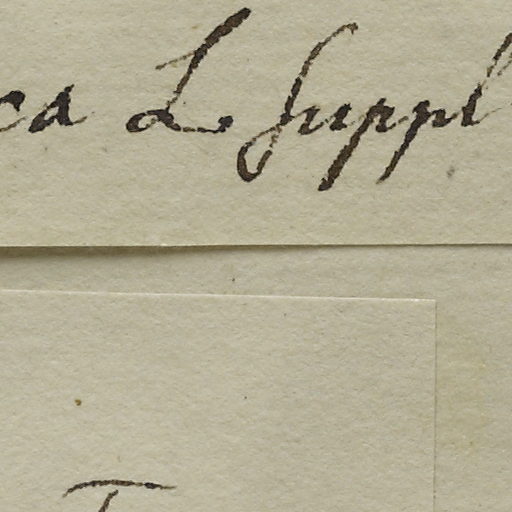 ca L Suppl